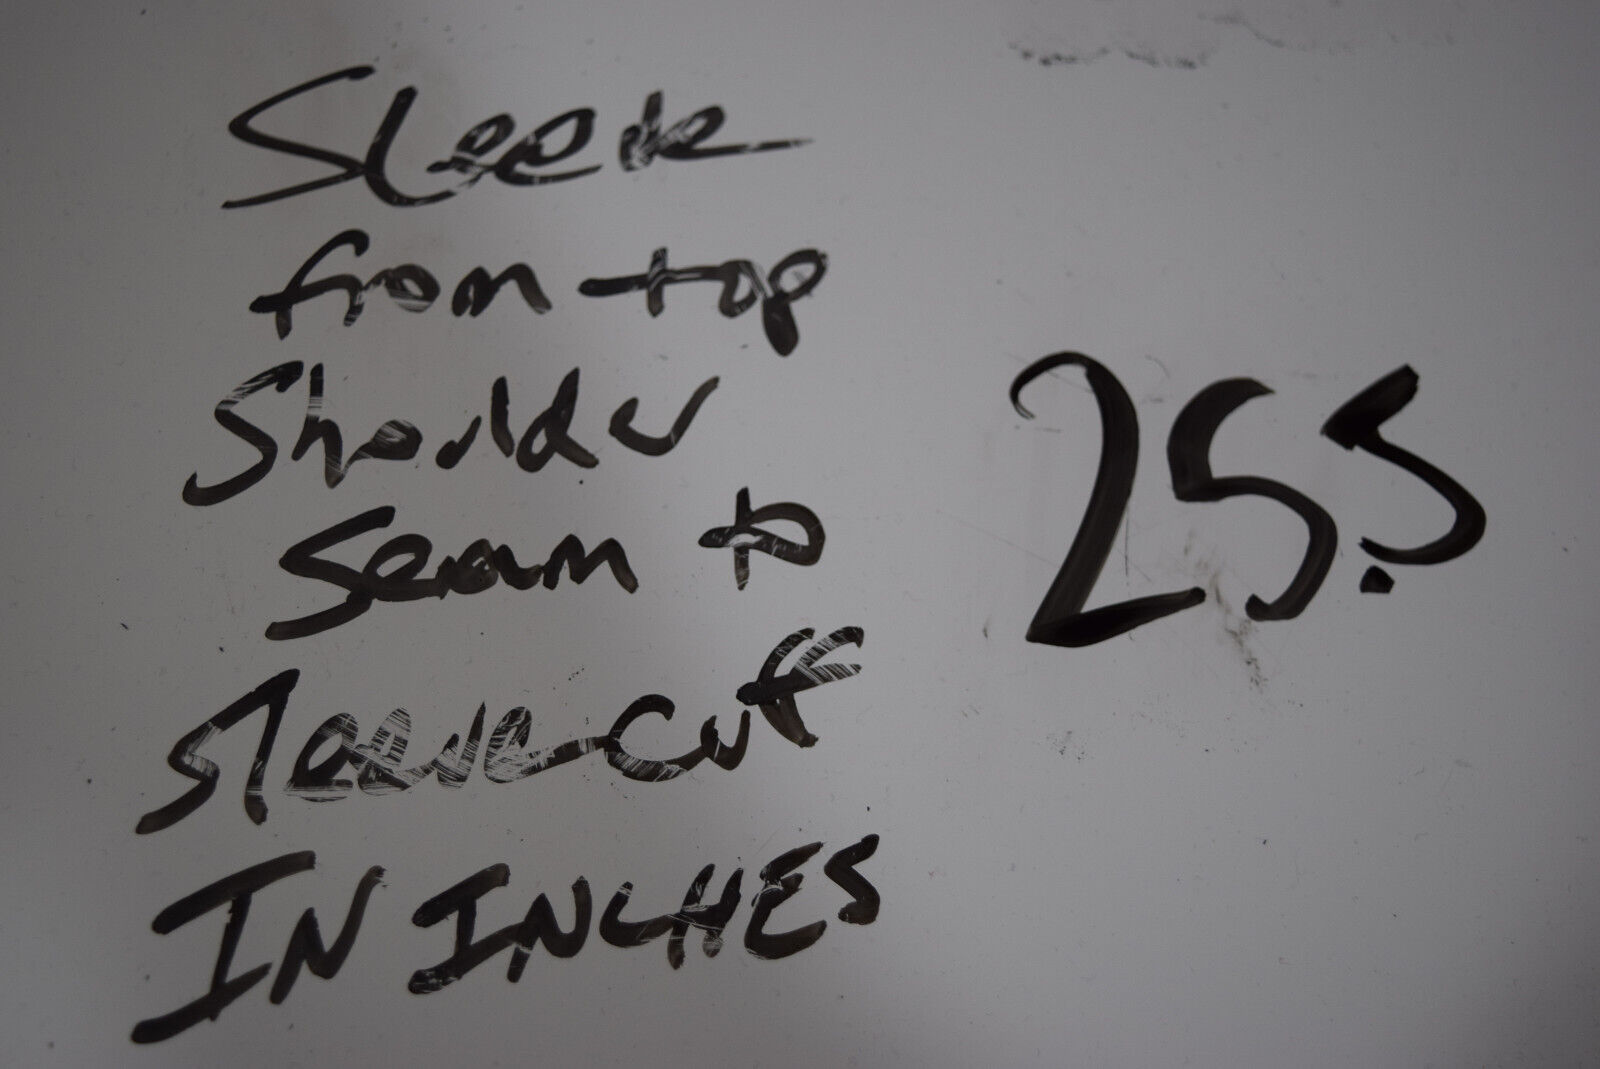 Sleeve
from top
Shoulder
seam to
sleeve cuff
IN INCHES
25.5